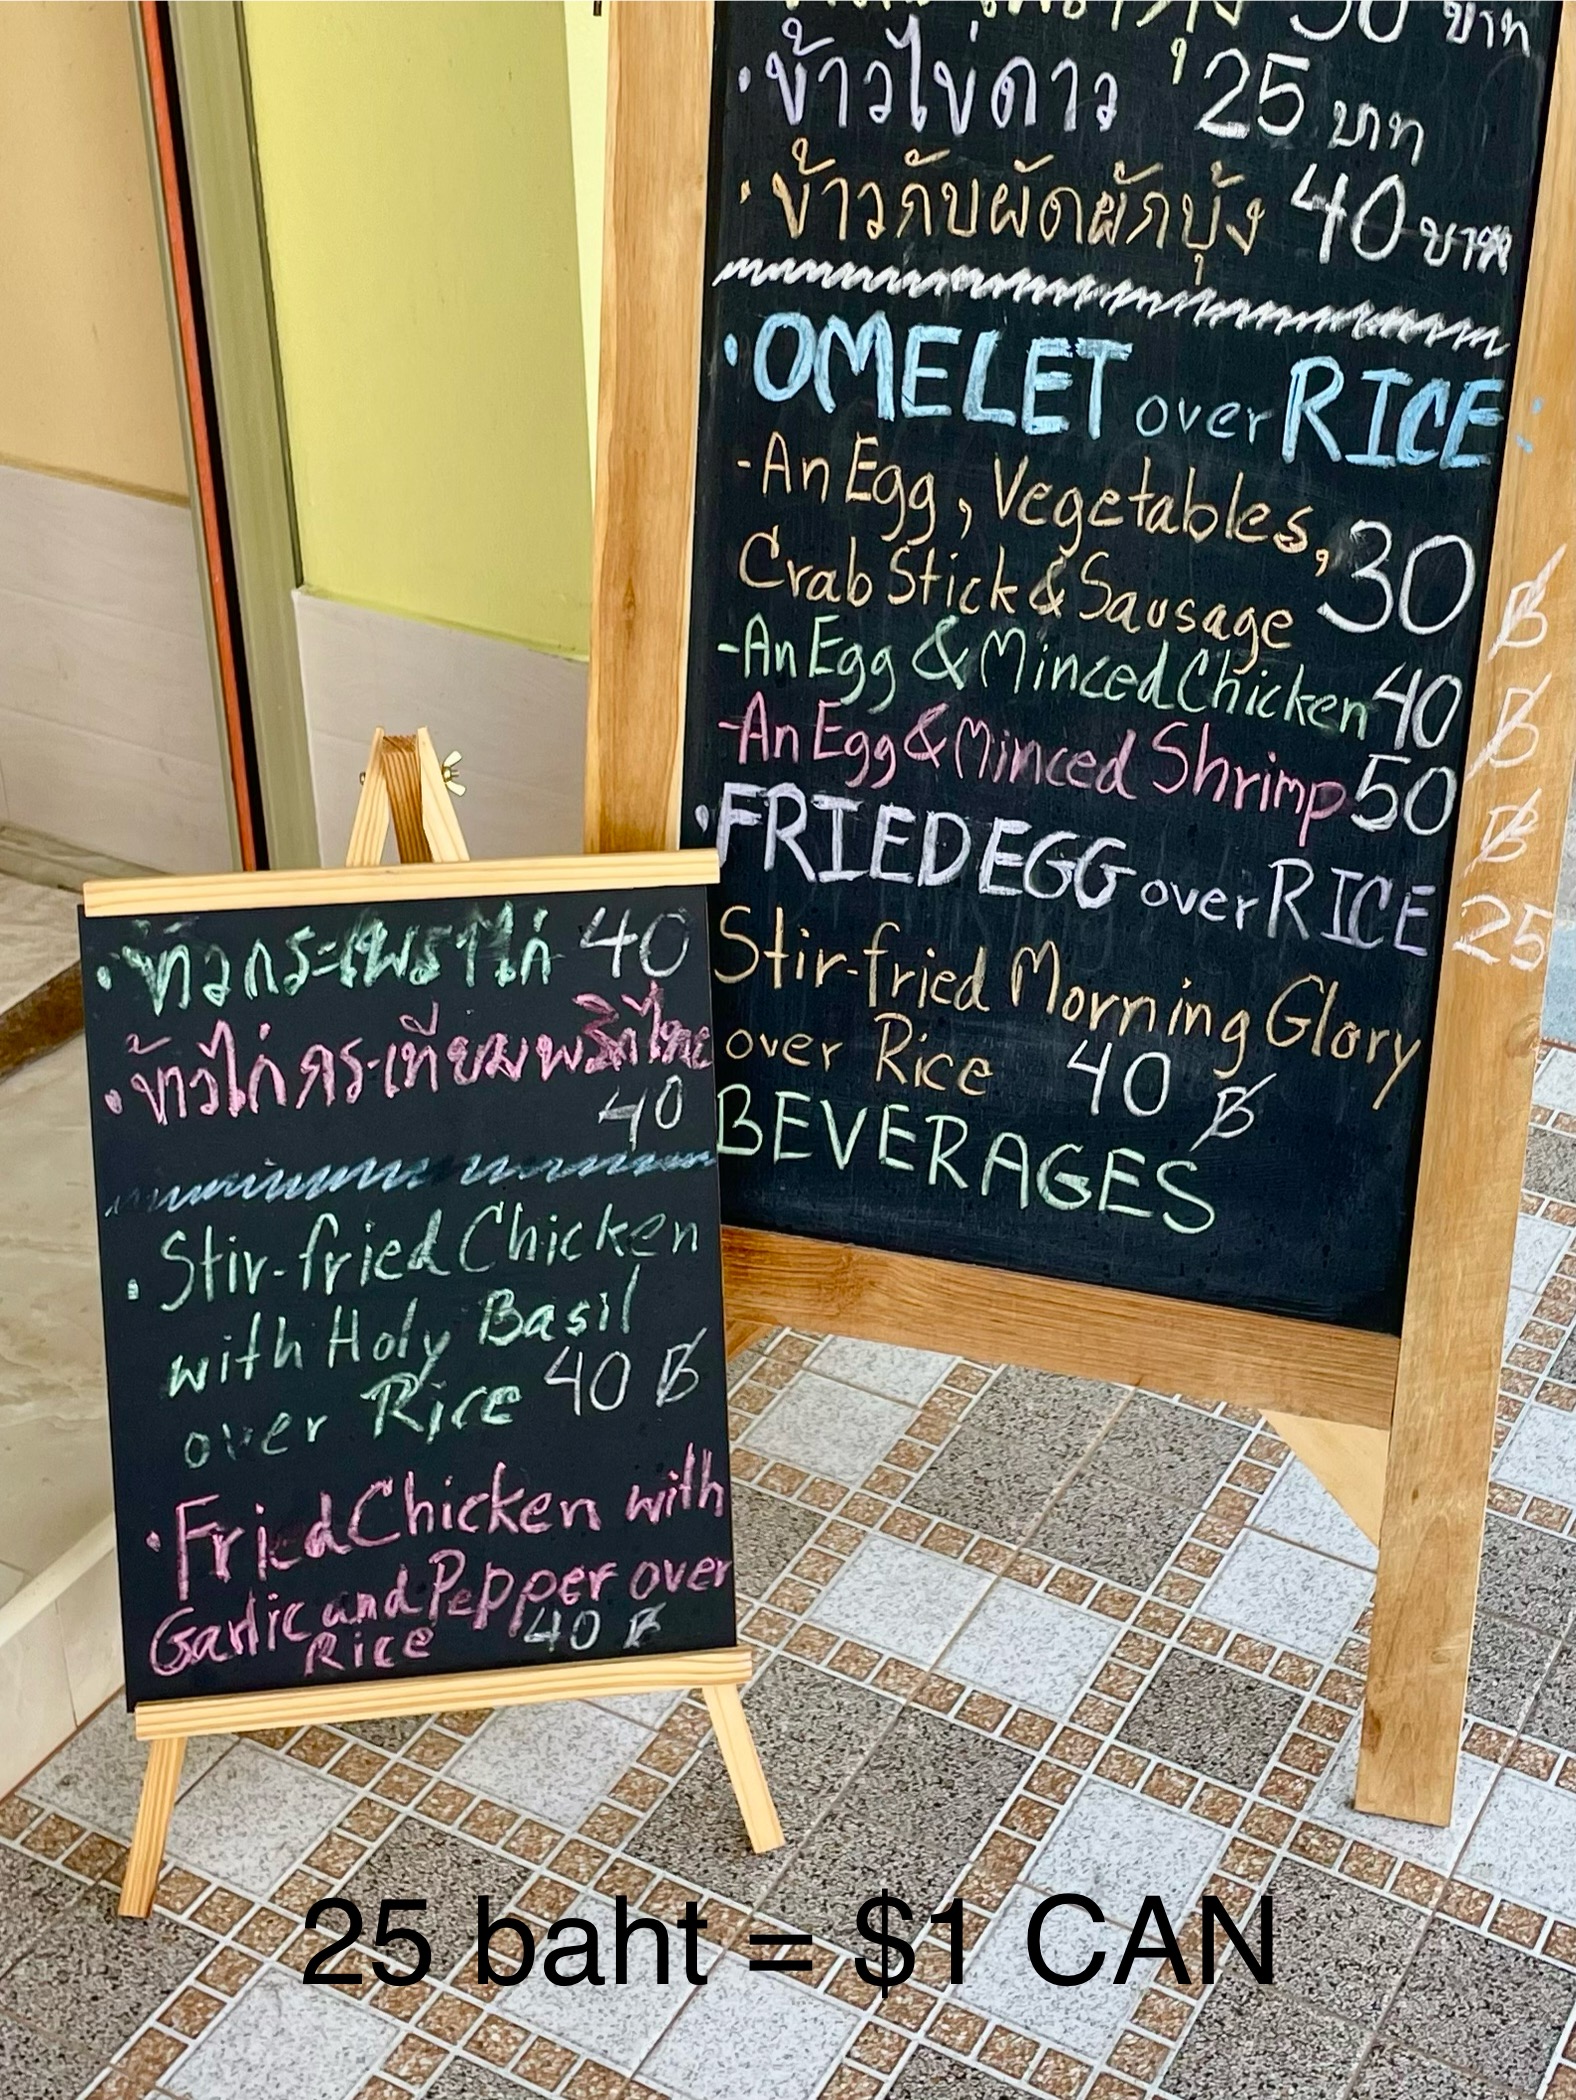 50 บาท
·ข้าวไข่ดาว 25 บาท
·ข้าวกับผัดผักบุ้ง 40 บาท
·OMELET over RICE:
-An Egg, Vegetables,
Crab Stick & Sausage 30 ฿
-An Egg & Minced Chicken 40 ฿
-An Egg & Minced Shrimp 50 ฿
·FRIED EGG over RICE 25
Stir-fried Morning Glory
over Rice 40 ฿
BEVERAGES
·ข้าวกระเพราไก่ 40
·ข้าวไก่กระเทียมพริกไทย
40
·Stir-fried Chicken
with Holy Basil
over Rice 40 ฿
·Fried Chicken with
Garlic and Pepper over
Rice 40 ฿
25 baht = $1 CAN